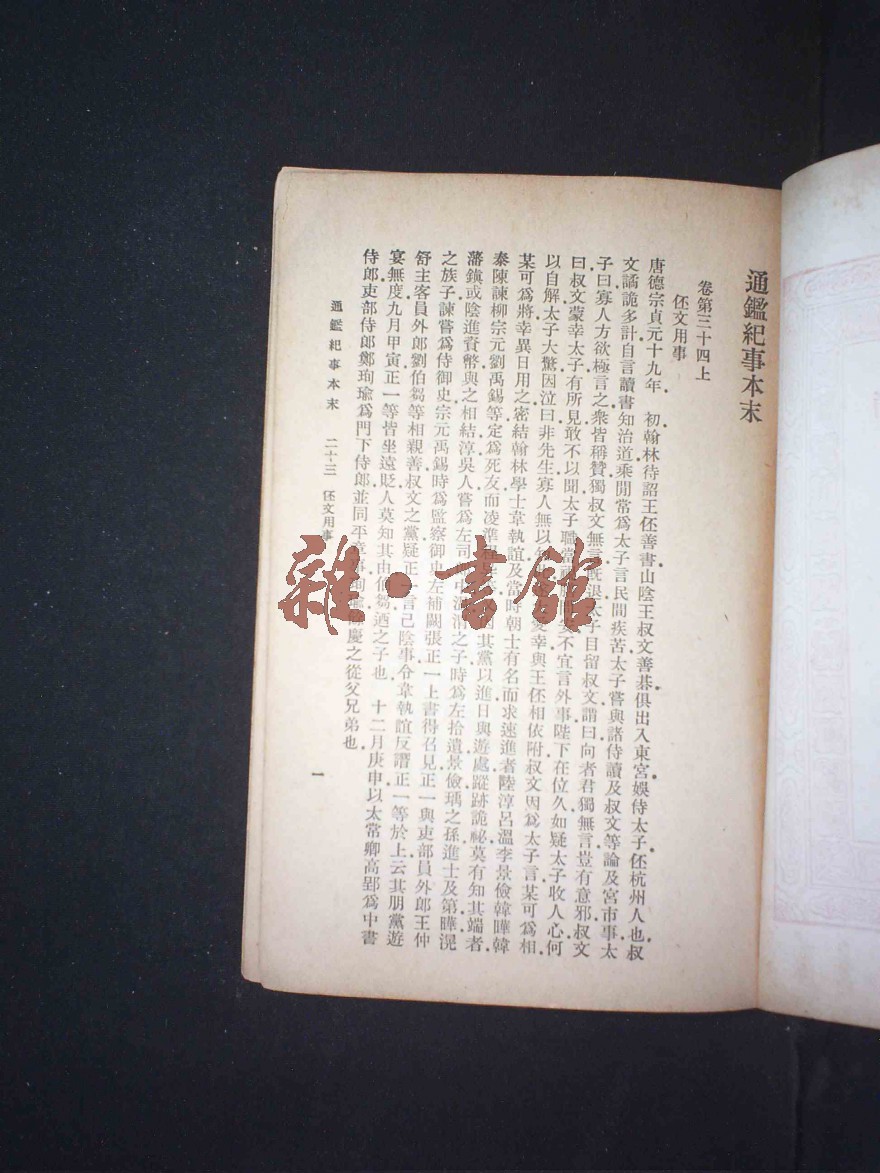 通鑑紀事本末
卷第三十四上
伾文用事
唐德宗貞元十九年 初翰林待詔王伾善書山陰王叔文善碁俱出入東宮娛侍太子伾杭州人也叔
文譎詭多計自言讀書知治道乘閒常爲太子言民間疾苦太子嘗與諸侍讀及叔文等論及宮市事太
子曰寡人方欲極言之衆皆稱贊獨叔文無言既退太子目留叔文謂曰向者君獨無言豈有意邪叔文
曰叔文蒙幸太子有所見敢不以聞太子職當 不宜言外事陛下在位久如疑太子收人心何
以自解太子大驚因泣曰非先生寡人無以知 愛幸與王伾相依附叔文因爲太子言某可爲相
某可爲將幸異日用之密結翰林學士韋執誼及當時朝士有名而求速進者陸淳呂溫李景儉韓曄韓
泰陳諫柳宗元劉禹錫等定爲死友而凌準程异 因其黨以進日與遊處蹤跡詭祕莫有知其端者
藩鎭或陰進資幣與之相結淳吳人嘗爲左司 中溫渭之子時爲左拾遺景儉瑀之孫進士及第曄滉
之族子諫嘗爲侍御史宗元禹錫時爲監察御史左補闕張正一上書得召見正一與吏部員外郎王仲
舒主客員外郎劉伯芻等相親善叔文之黨疑正一言己陰事令韋執誼反譖正一等於上云其朋黨遊
宴無度九月甲寅正一等皆坐遠貶人莫知其由伯芻迺之子也 十二月庚申以太常卿高郢爲中書
侍郎吏部侍郎鄭珣瑜爲門下侍郎並同平章事珣瑜 慶之從父兄弟也
通鑑紀事本末 二十三 伾文用事 一
雜·書館